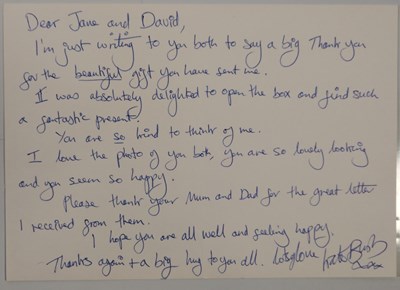 Dear Jane and David,
I'm just writing to you both to say a big Thank you
for the beautiful gift you have sent me.
I was absolutely delighted to open the box and find such
a fantastic present.
You are so kind to think of me.
I love the photo of you both, you are so lovely looking
and you seem so happy.
Please thank your Mum and Dad for the great letter
I received from them.
I hope you are all well and feeling happy.
Thanks again + a big hug to you all. Lots of love Kate Bush